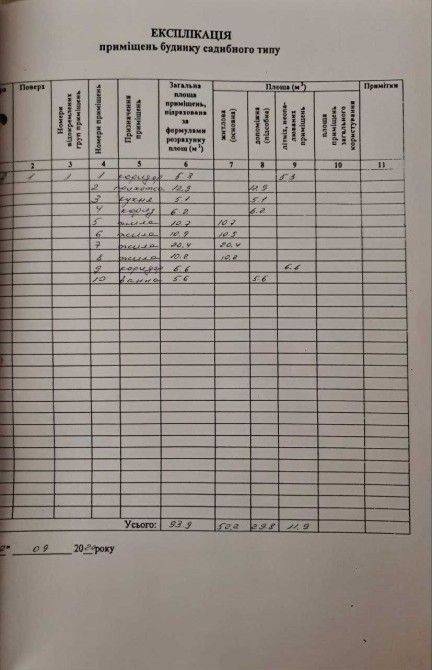 ЕКСПЛІКАЦІЯ
приміщень будинку садибного типу
Поверх
Номери відокремлених груп приміщень
Номери приміщень
Призначення приміщень
Загальна площа приміщень, підрахована за формулами розрахунку площ (м²)
Площа (м²)
житлова (основна)
допоміжна (підсобна)
літніх, неопалюваних приміщень
площа приміщень загального користування
Примітки
2 3 4 5 6 7 8 9 10 11
1 1 1 коридор 5.3 5.3
2 12.9 12.9
3 кухня 5.1 5.1
4 6.2 6.2
5 жила 10.2 10.2
6 жила
7 жила 20.4 20.4
8 жила
9 коридор 6.6 6.6
10 ванна 5.6 5.6
Усього: 93.9 29.8 11.9
09 2020 року